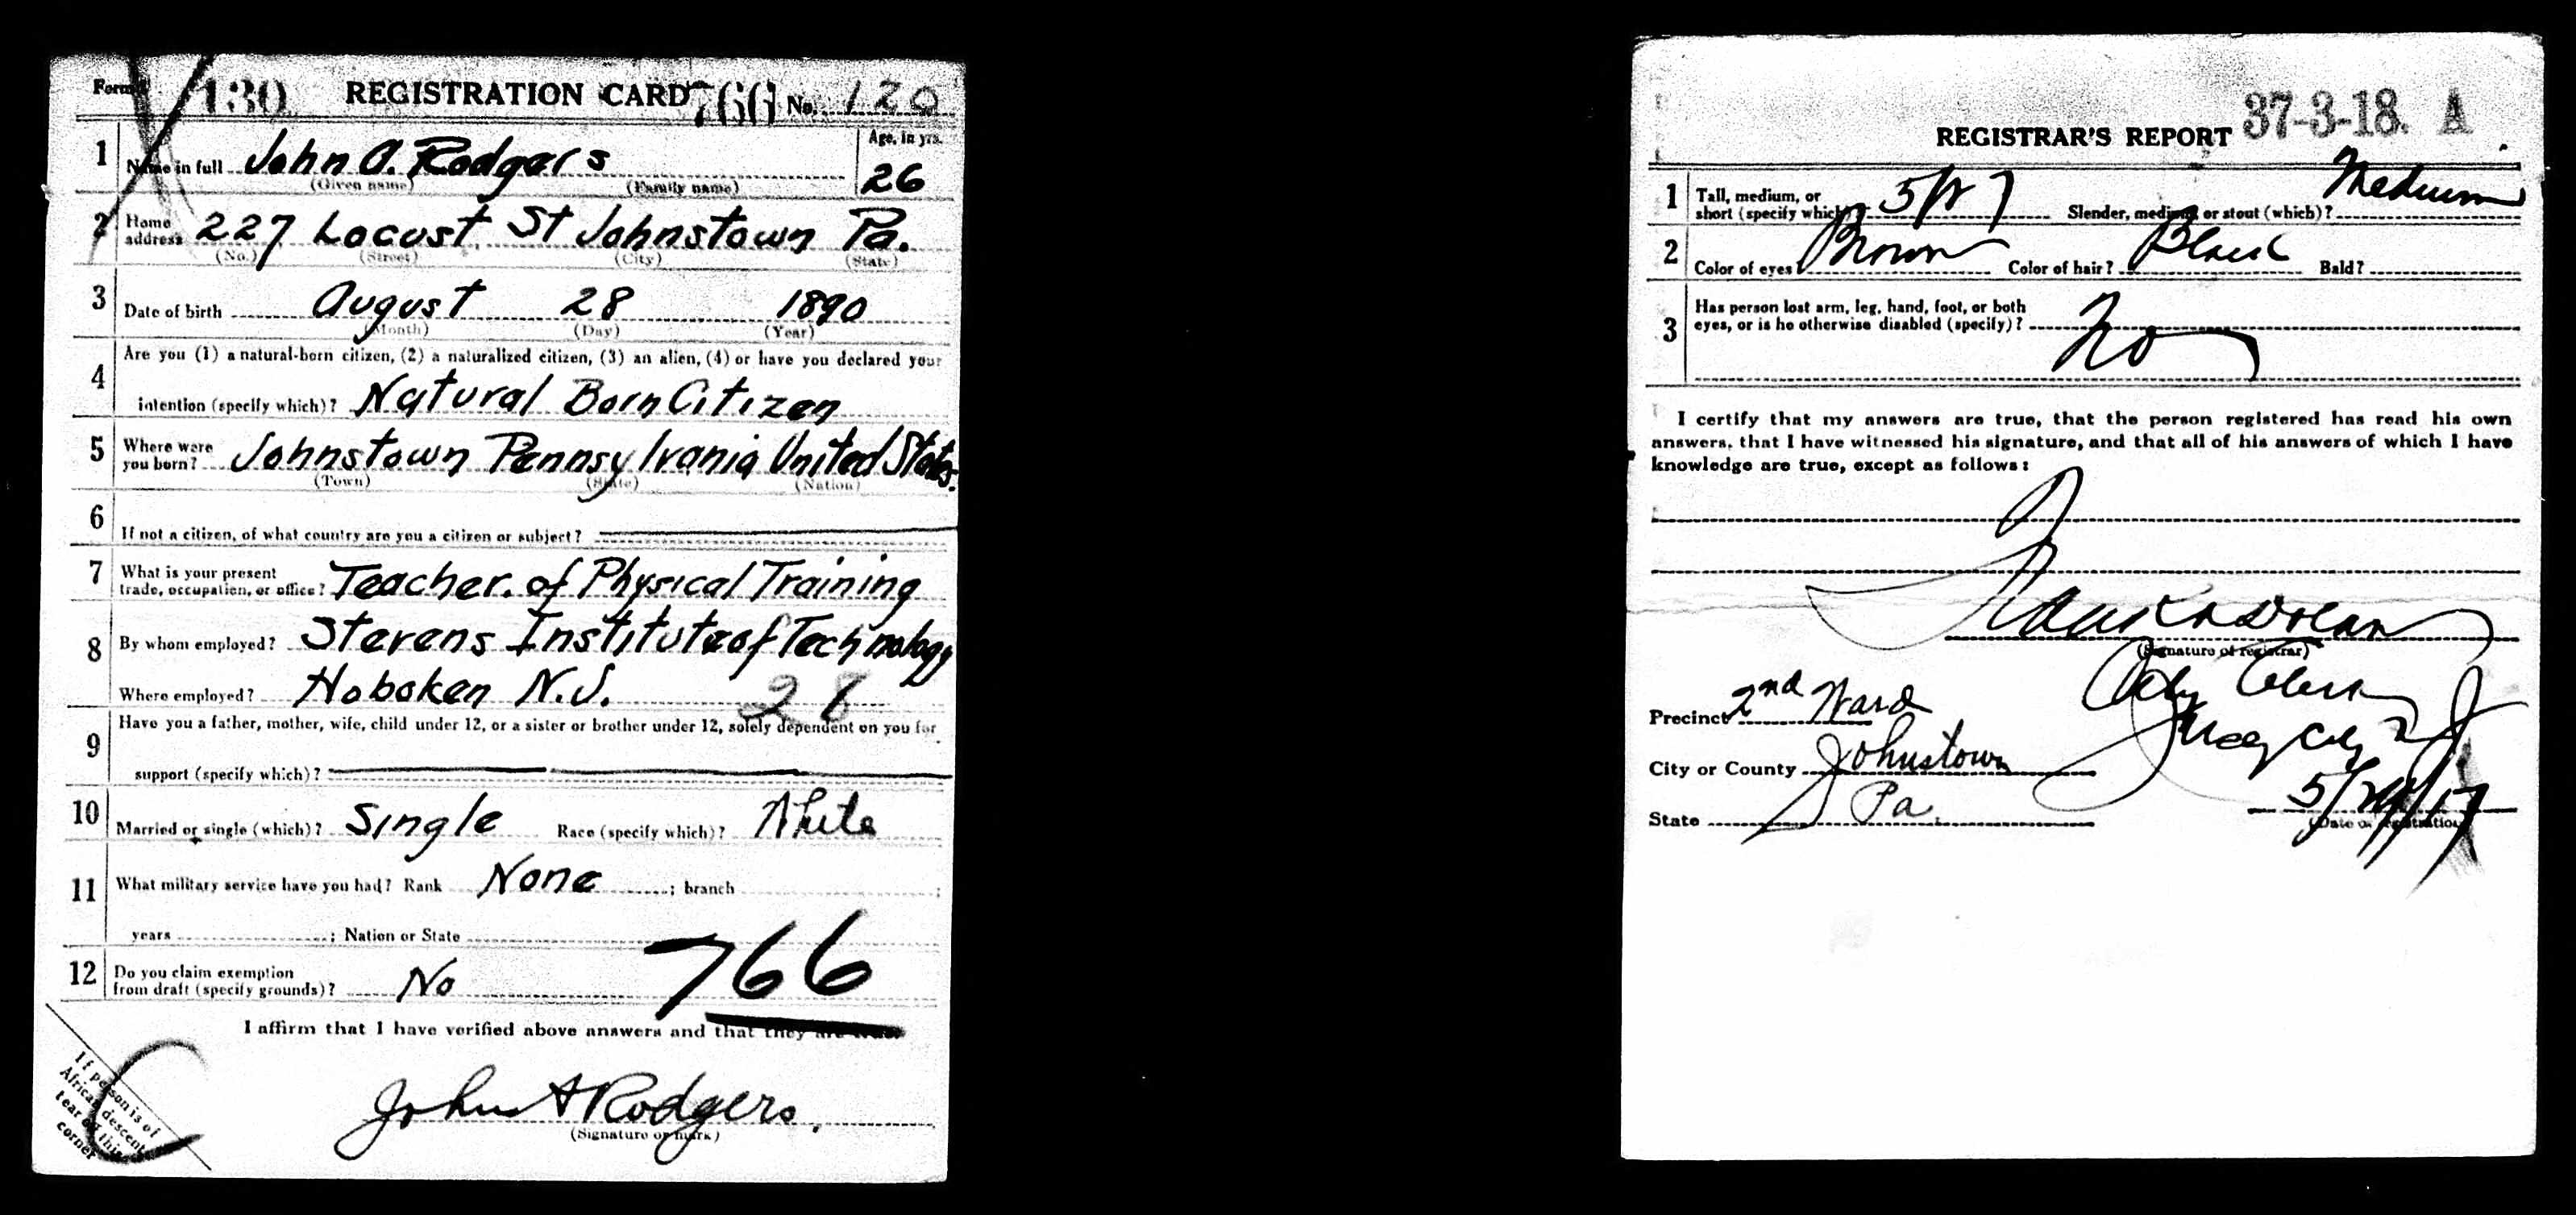 Form 1 130 REGISTRATION CARD 766 No. 120
1 Name in full John A. Rodgers Age, in yrs.
(Given name) (Family name) 26
2 Home address 227 Locust St Johnstown Pa.
(No.) (Street) (City) (State)
3 Date of birth August 28 1890
(Month) (Day) (Year)
4 Are you (1) a natural-born citizen, (2) a naturalized citizen, (3) an alien, (4) or have you declared your
intention (specify which)? Natural Born Citizen
5 Where were you born? Johnstown Pennsylvania United States.
(Town) (State) (Nation)
6 If not a citizen, of what country are you a citizen or subject?
7 What is your present trade, occupation, or office? Teacher. of Physical Training
8 By whom employed? Stevens Institute of Technology
Where employed? Hoboken N.J. 28
9 Have you a father, mother, wife, child under 12, or a sister or brother under 12, solely dependent on you for
support (specify which)?
10 Married or single (which)? Single Race (specify which)? White
11 What military service have you had? Rank None ; branch ;
years ; Nation or State
12 Do you claim exemption from draft (specify grounds)? No 766
I affirm that I have verified above answers and that they are true.
John A Rodgers.
(Signature or mark)
If person is of
African descent,
tear off this
corner
REGISTRAR'S REPORT 37-3-18. A
1 Tall, medium, or short (specify which)? 5ft 7 Slender, medium, or stout (which)? Medium
2 Color of eyes Brown Color of hair? Black Bald?
3 Has person lost arm, leg, hand, foot, or both
eyes, or is he otherwise disabled (specify)? No
I certify that my answers are true, that the person registered has read his own
answers, that I have witnessed his signature, and that all of his answers of which I have
knowledge are true, except as follows:
(Signature of registrar)
City Clerk
Precinct 2nd Ward
City or County Johnstown
State Pa.
5/29/17
(Date of registration)